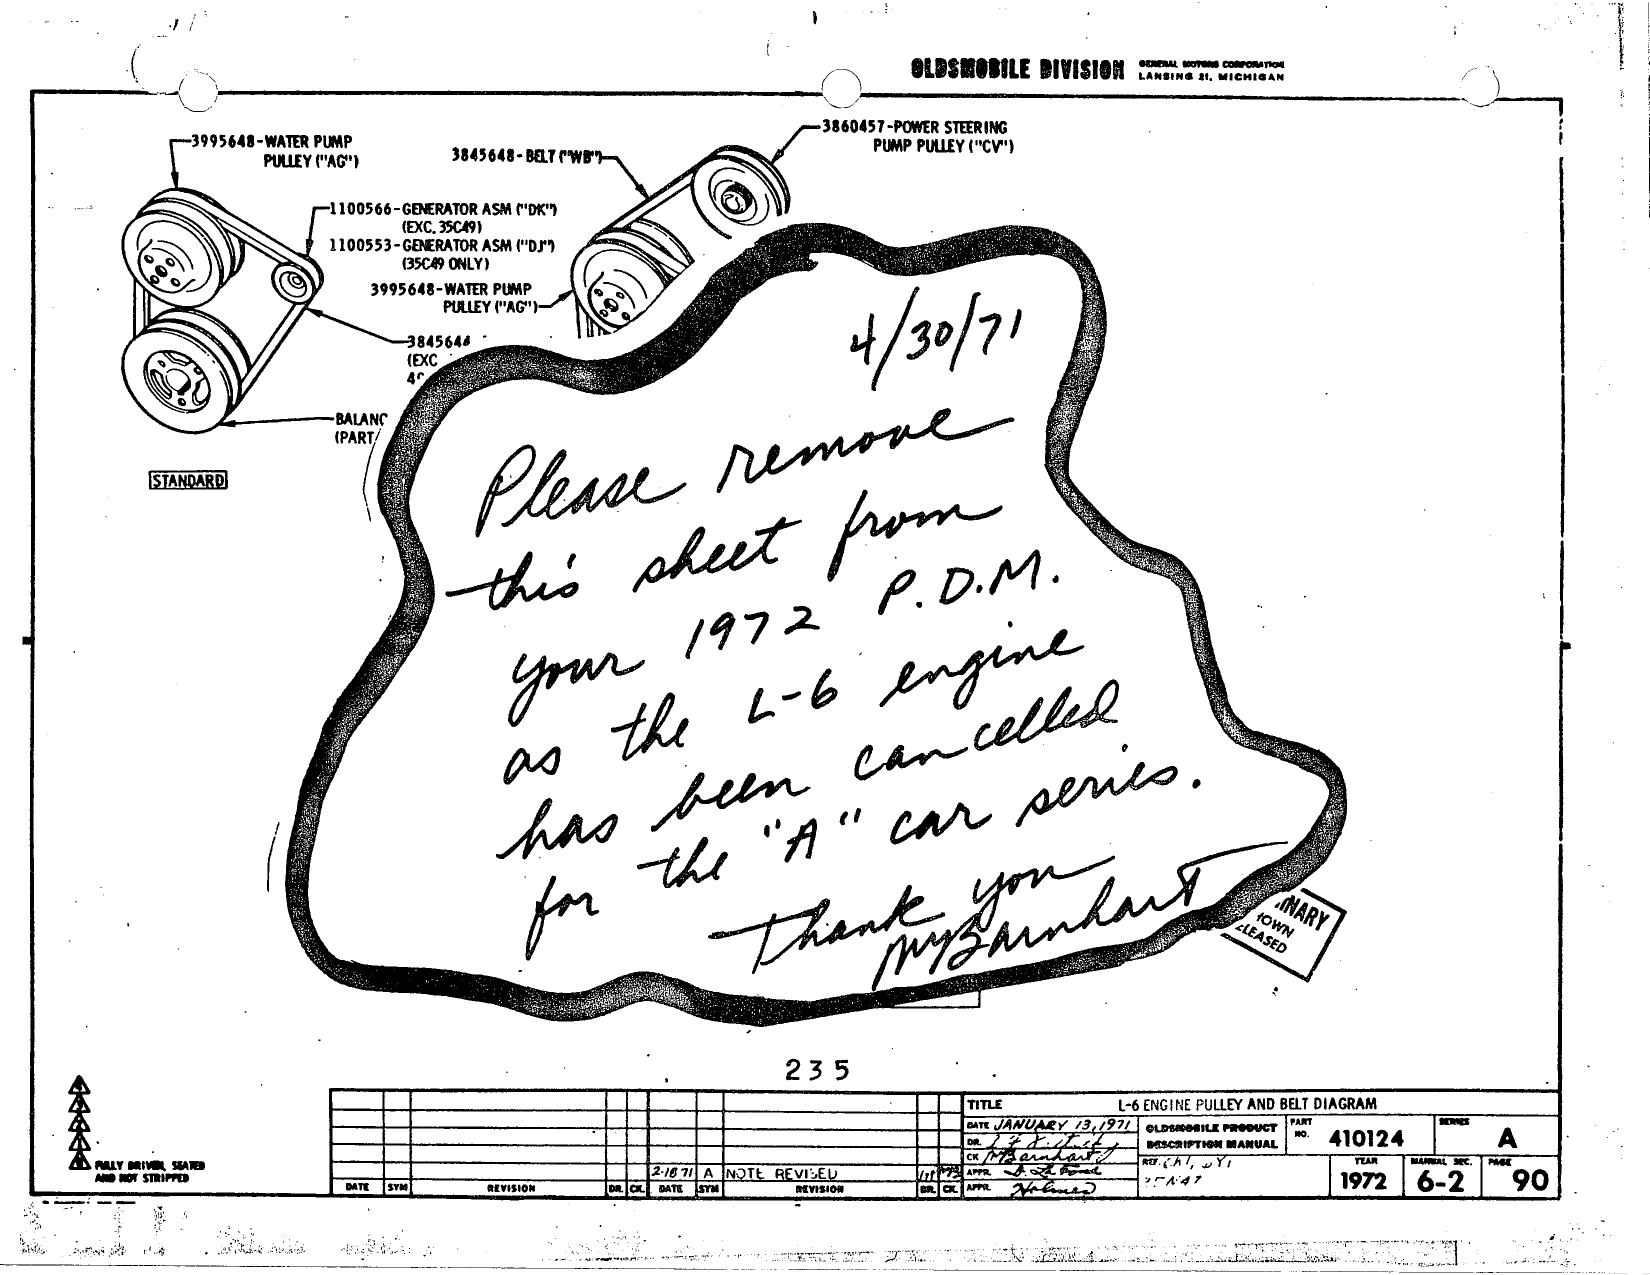 OLDSMOBILE DIVISION
GENERAL MOTORS CORPORATION
LANSING 21, MICHIGAN
3995648-WATER PUMP
PULLEY ("AG")
3845648-BELT ("WB")
3860457-POWER STEERING
PUMP PULLEY ("CV")
1100566-GENERATOR ASM ("DK")
(EXC. 35C49)
1100553-GENERATOR ASM ("DJ")
(35C49 ONLY)
3995648-WATER PUMP
PULLEY ("AG")
(EXC
STANDARD
4/30/71
Please remove
this sheet from
your 1972 P.D.M.
as the L-6 engine
has been cancelled
for the "A" car series.
Thank you
MBarnhart
235
FULLY DRIVEN, SEATED
AND NOT STRIPPED
2-18-71 A NOTE REVISED
DATE SYM REVISION DR. CK. DATE SYM REVISION DR. CK.
TITLE L-6 ENGINE PULLEY AND BELT DIAGRAM
DATE JANUARY 13, 1971
DR.
CK MBarnhart
APPR.
APPR. Holmes
OLDSMOBILE PRODUCT
DESCRIPTION MANUAL
REF.
PART
NO. 410124
SERIES A
YEAR 1972
MANUAL SEC. 6-2
PAGE 90